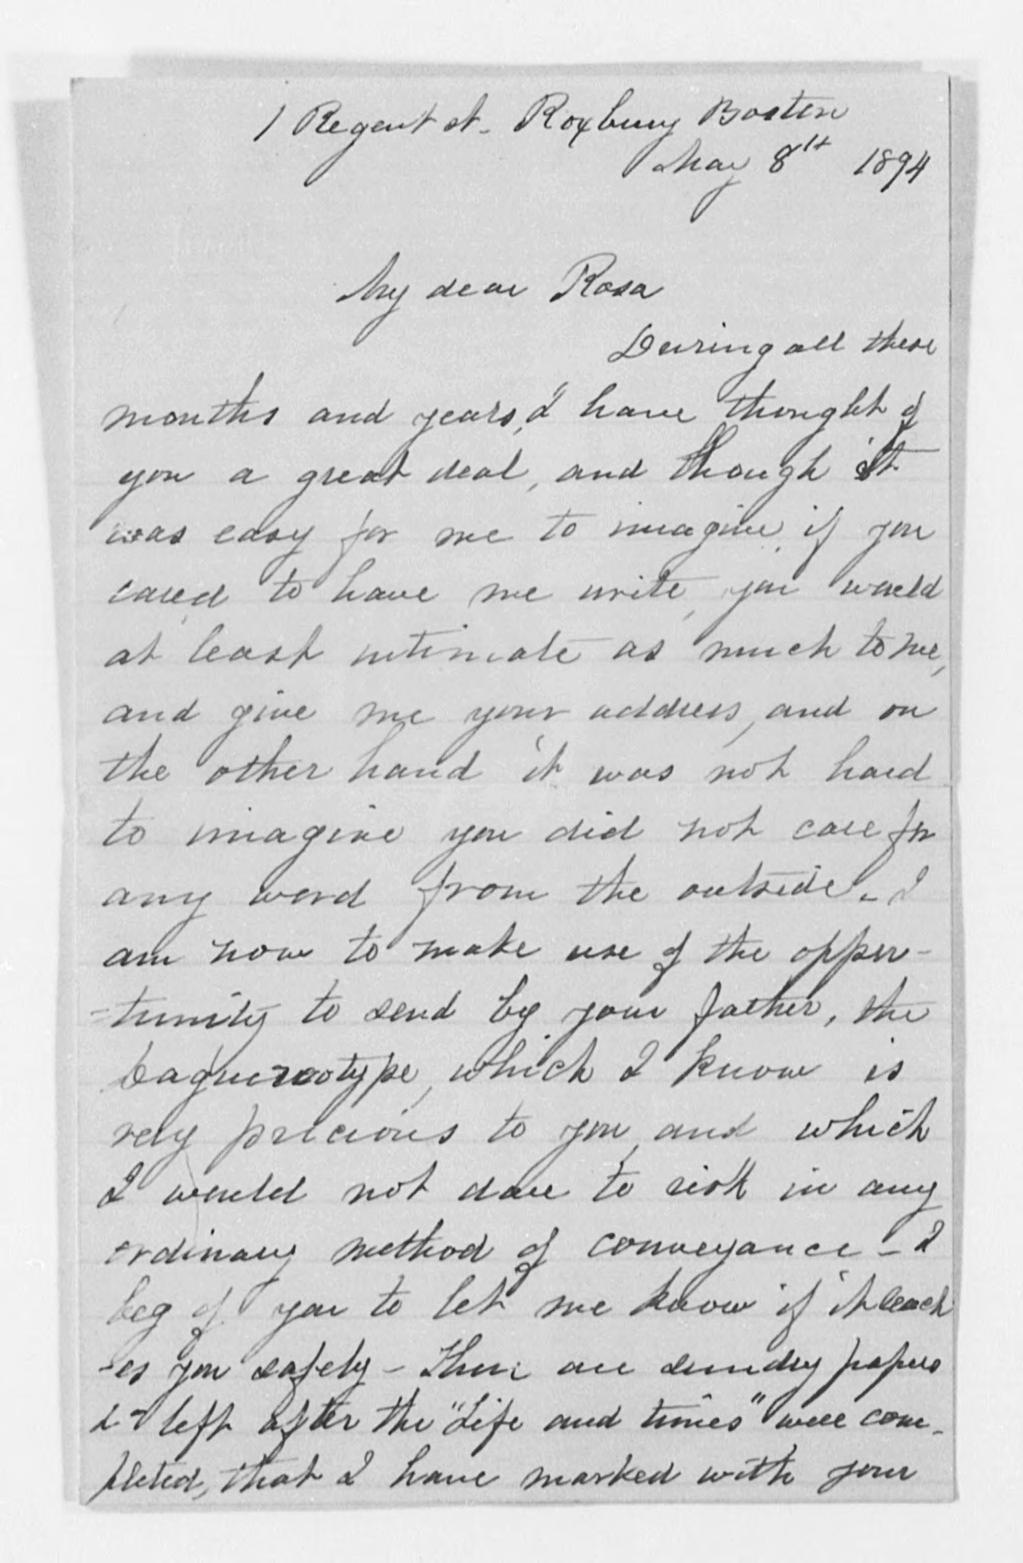 1 Regent st. Roxbury Boston
May 8th 1894
My dear Rosa
During all these
months and years, I have thought of
you a great deal, and though it
was easy for me to imagine if you
cared to have me write, you would
at least intimate as much to me,
and give me your address, and on
the other hand it was not hard
to imagine you did not care for
any word from the outside - I
am now to make use of the oppor-
=tunity to send by your father, the
Daguerrotype, which I know is
very precious to you, and which
I would not dare to risk in any
ordinary method of conveyance - I
beg of you to let me know if it reach
-es you safely - There are sundry papers
left after the "Life and times" were com-
pleted, that I have marked with your